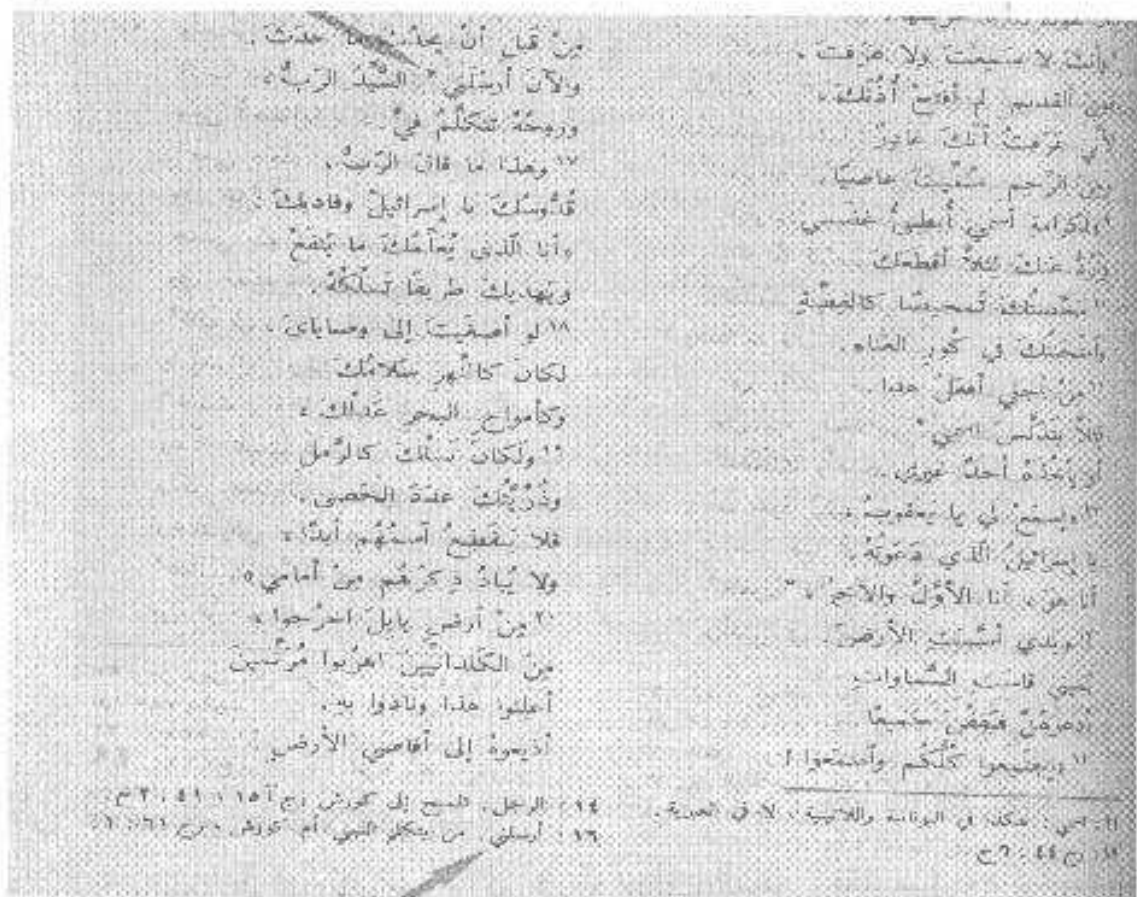 وأنتَ لا سَمِعتَ ولا عَرَفتَ ،
القديمِ لم أفتحْ أُذُنَكَ ،
لأنّي عَرَفتُ أنّكَ غادِرٌ
ومِنَ الرَّحِمِ سُمِّيتَ عاصيًا.
٩ولِكرامةِ اسمي أُبطئُ غضَبي
عنكَ لِئلاَّ أقطعَكَ
١٠ تَمحيصًا كالفِضَّةِ
وامتَحَنتُكَ في كُورِ العَناءِ.
١١مِنْ أجلي أفعَلُ هذا
لِئلاَّ يتَدَنَّسَ اسمي*
أو يأخُذَهُ أحدٌ غيري.
١٢إسمَعْ لي يا يعقوبُ،
يا إسرائيلُ الّذي دَعَوتُهُ.
أنا هوَ، أنا الأوَّلُ والآخِرُ*،
١٣ويَدي أسَّسَتِ الأرضَ،
قاسَتِ السَّماواتِ
أدعوهُنَّ فيَقِفْنَ جميعًا
١٤إجتَمِعوا كُلُّكُم واسمَعوا!
مِنْ قَبلِ أنْ يَحدُثَ ما حدَثَ.
والآنَ أرسَلَني* السَّيِّدُ الرّبُّ،
ورُوحُهُ تتَكَلَّمُ فيَّ
١٧وهذا ما قالَ الرّبُّ،
قُدُّوسُكَ يا إسرائيلُ وفاديكَ:
«أنا الّذي يُعَلِّمُكَ ما يَنفَعُ
ويَهديكَ طريقًا تَسلُكُهُ.
١٨لو أصغَيتَ إلى وصايايَ،
لكانَ كالنَّهرِ سلامُكَ
وكأمواجِ البحرِ عَدلُكَ،
١٩ولَكانَ نَسلُكَ كالرَّملِ
وذُرِّيَّتُكَ عدَدَ الحَصى،
فلا يَنقَطِعُ اَسمُهُم أبدًا،
ولا يُبادُ ذِكرُهُم مِنْ أمامي».
٢٠مِنْ أرضِ بابِلَ اخرُجوا،
مِنَ الكَلدانيِّينَ اهرُبوا مُرَنِّمينَ
أعلِنوا هذا ونادُوا بهِ،
أذيعوهُ إلى أقاصي الأرضِ:
١١: اسمي: هكذا في اليونانية واللاتينية، لا في العبرية.
١٢: ق ٤٤: ٦ ح
١٤: الرجل. تلميح إلى كورش (ج آ ١٥؛ ٤١: ٢ ح
١٦: أرسلني. من يتكلّم النبي أم كورش ٦١: ١